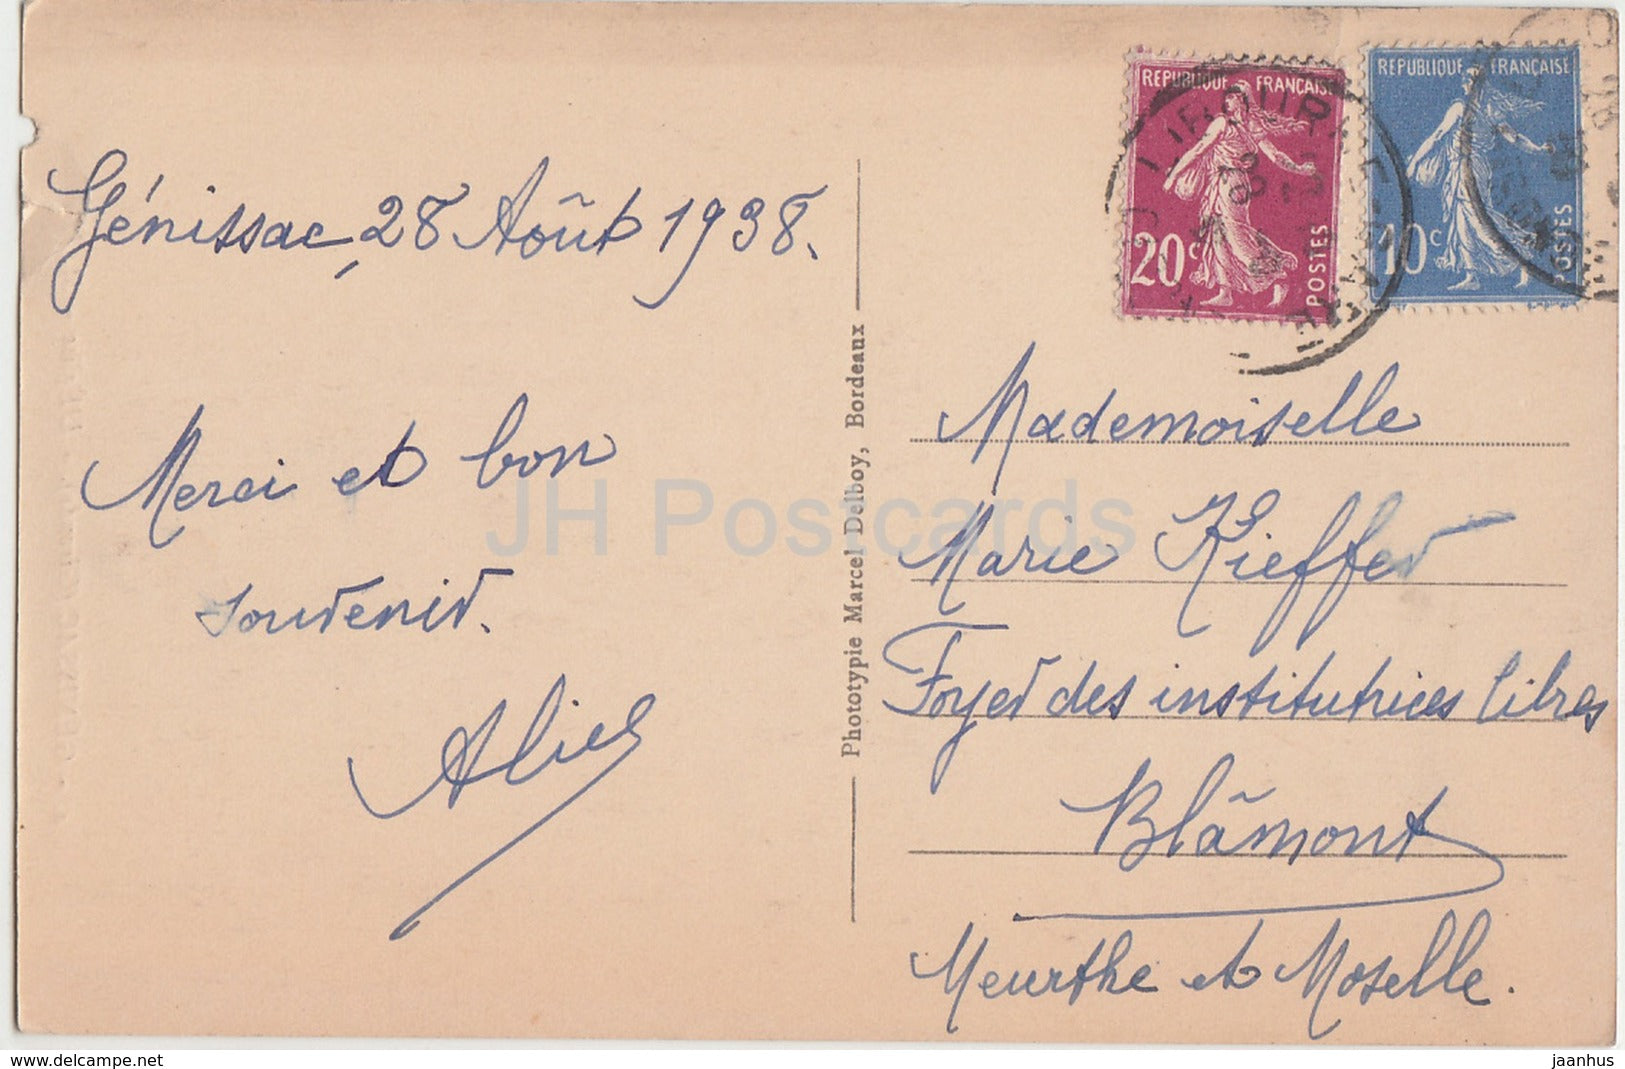 Génissac, 28 Août 1938.
Merci et bon
souvenir.
Alice
Phototypie Marcel Delboy, Bordeaux
REPUBLIQUE FRANÇAISE
20c
POSTES
REPUBLIQUE FRANÇAISE
10c
POSTES
LIBOURNE
Mademoiselle
Marie Kieffer
Foyer des institutrices libres
Blâmont
Meurthe et Moselle.
JH Postcards
www.delcampe.net
jaanhus